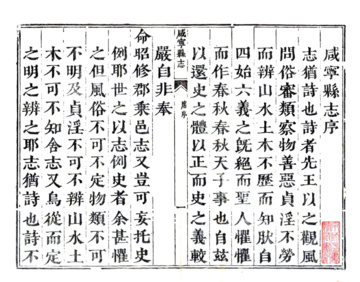 咸寧縣志序
志猶詩也詩者先王以之觀風
問俗審類察物善惡貞淫不勞
而辨山水土木不歷而知肰自
四始六義之旣絕而聖人懼懼
而作春秋春秋天子事也自兹
以還史之體以正而史之義較
咸寧縣志
序
嚴自非奉
命昭修郡乘邑志又豈可妄托史
例耶世之以志例史者余甚懼
之但風俗不可不定物類不可
不明及貞淫不可不辨山水土
木不可不知舍志又烏從而定
之明之辨之耶志猶詩也詩不